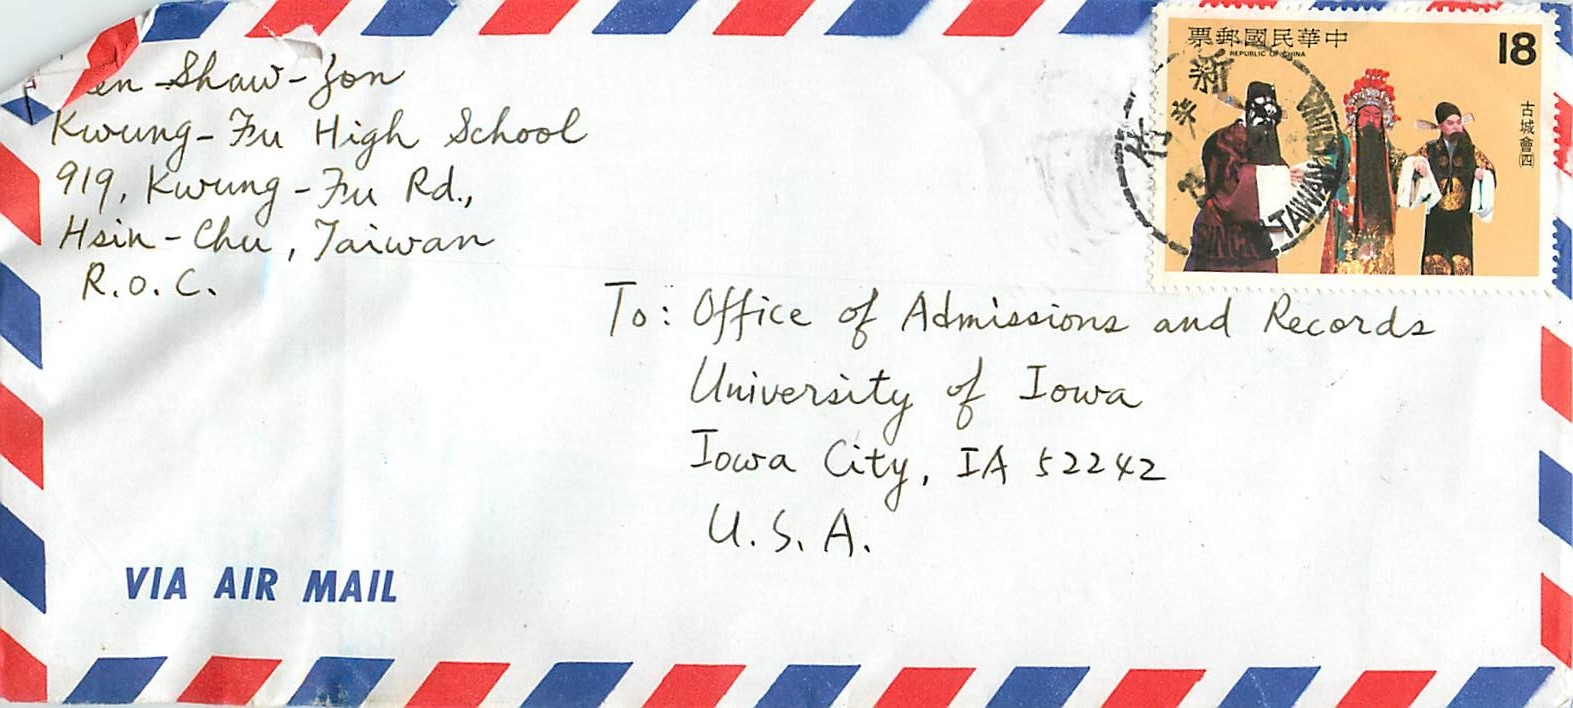 Shaw-Jon
Kwung-Fu High School
919, Kwung-Fu Rd.,
Hsin-Chu, Taiwan
R.O.C.
票郵國民華中
REPUBLIC OF CHINA
18
古城會(四)
新竹
TAIWAN
To: Office of Admissions and Records
University of Iowa
Iowa City, IA 52242
U.S.A.
VIA AIR MAIL